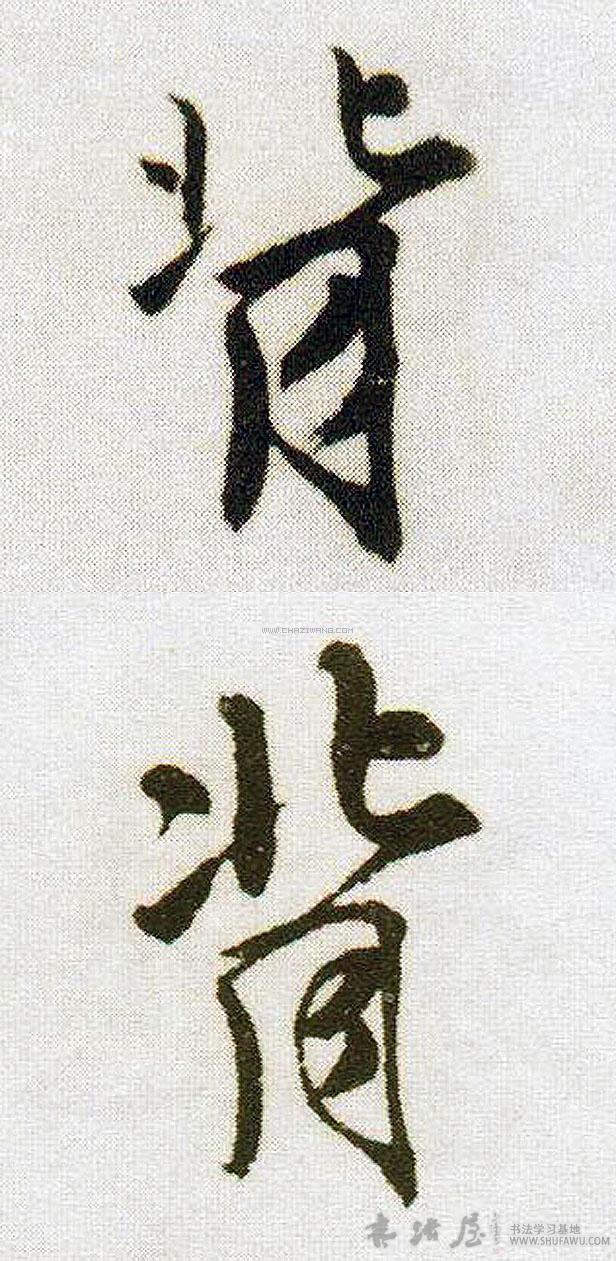 背
WWW.CHAZIWANG.COM
背
书法屋 书法学习基地
WWW.SHUFAWU.COM